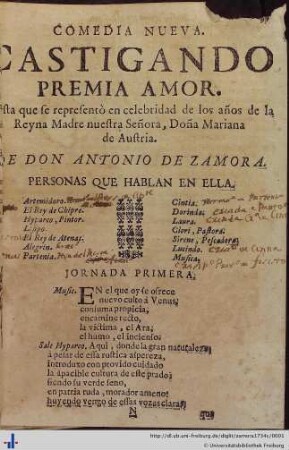 COMEDIA NUEVA.
CASTIGANDO
PREMIA AMOR.
esta que se representò en celebridad de los años de la
Reyna Madre nuestra Señora, Doña Mariana
de Austria.
DE DON ANTONIO DE ZAMORA.
PERSONAS QUE HABLAN EN ELLA.
Artemidoro.
El Rey de Chipre.
Hyparco, Pintor.
El Rey de Atenas.
Alegrin.
Partenia.
Cintia.
Dorinda.
Laura.
Glori, Pastora.
Sirene, Pescadora.
Lucindo.
Musica.
JORNADA PRIMERA.
Music. EN el que oy se ofrece
nuevo culto à Venus,
consuma propicia,
encamine recto,
la victima, el Ara,
el humo, el incienso.
Sale Hyparco. Aqui, donde la gran naturaleza
à pesar de esta rustica aspereza,
introduxo con providо cuidado
la apacible cultura de este prado,
siendo su verde seno,
en patria ruda, morador ameno:
huyendo vengo de essas vozes claras,
N
que
http://dl.ub.uni-freiburg.de/diglit/zamora1734c/0001
© Universitätsbibliothek Freiburg